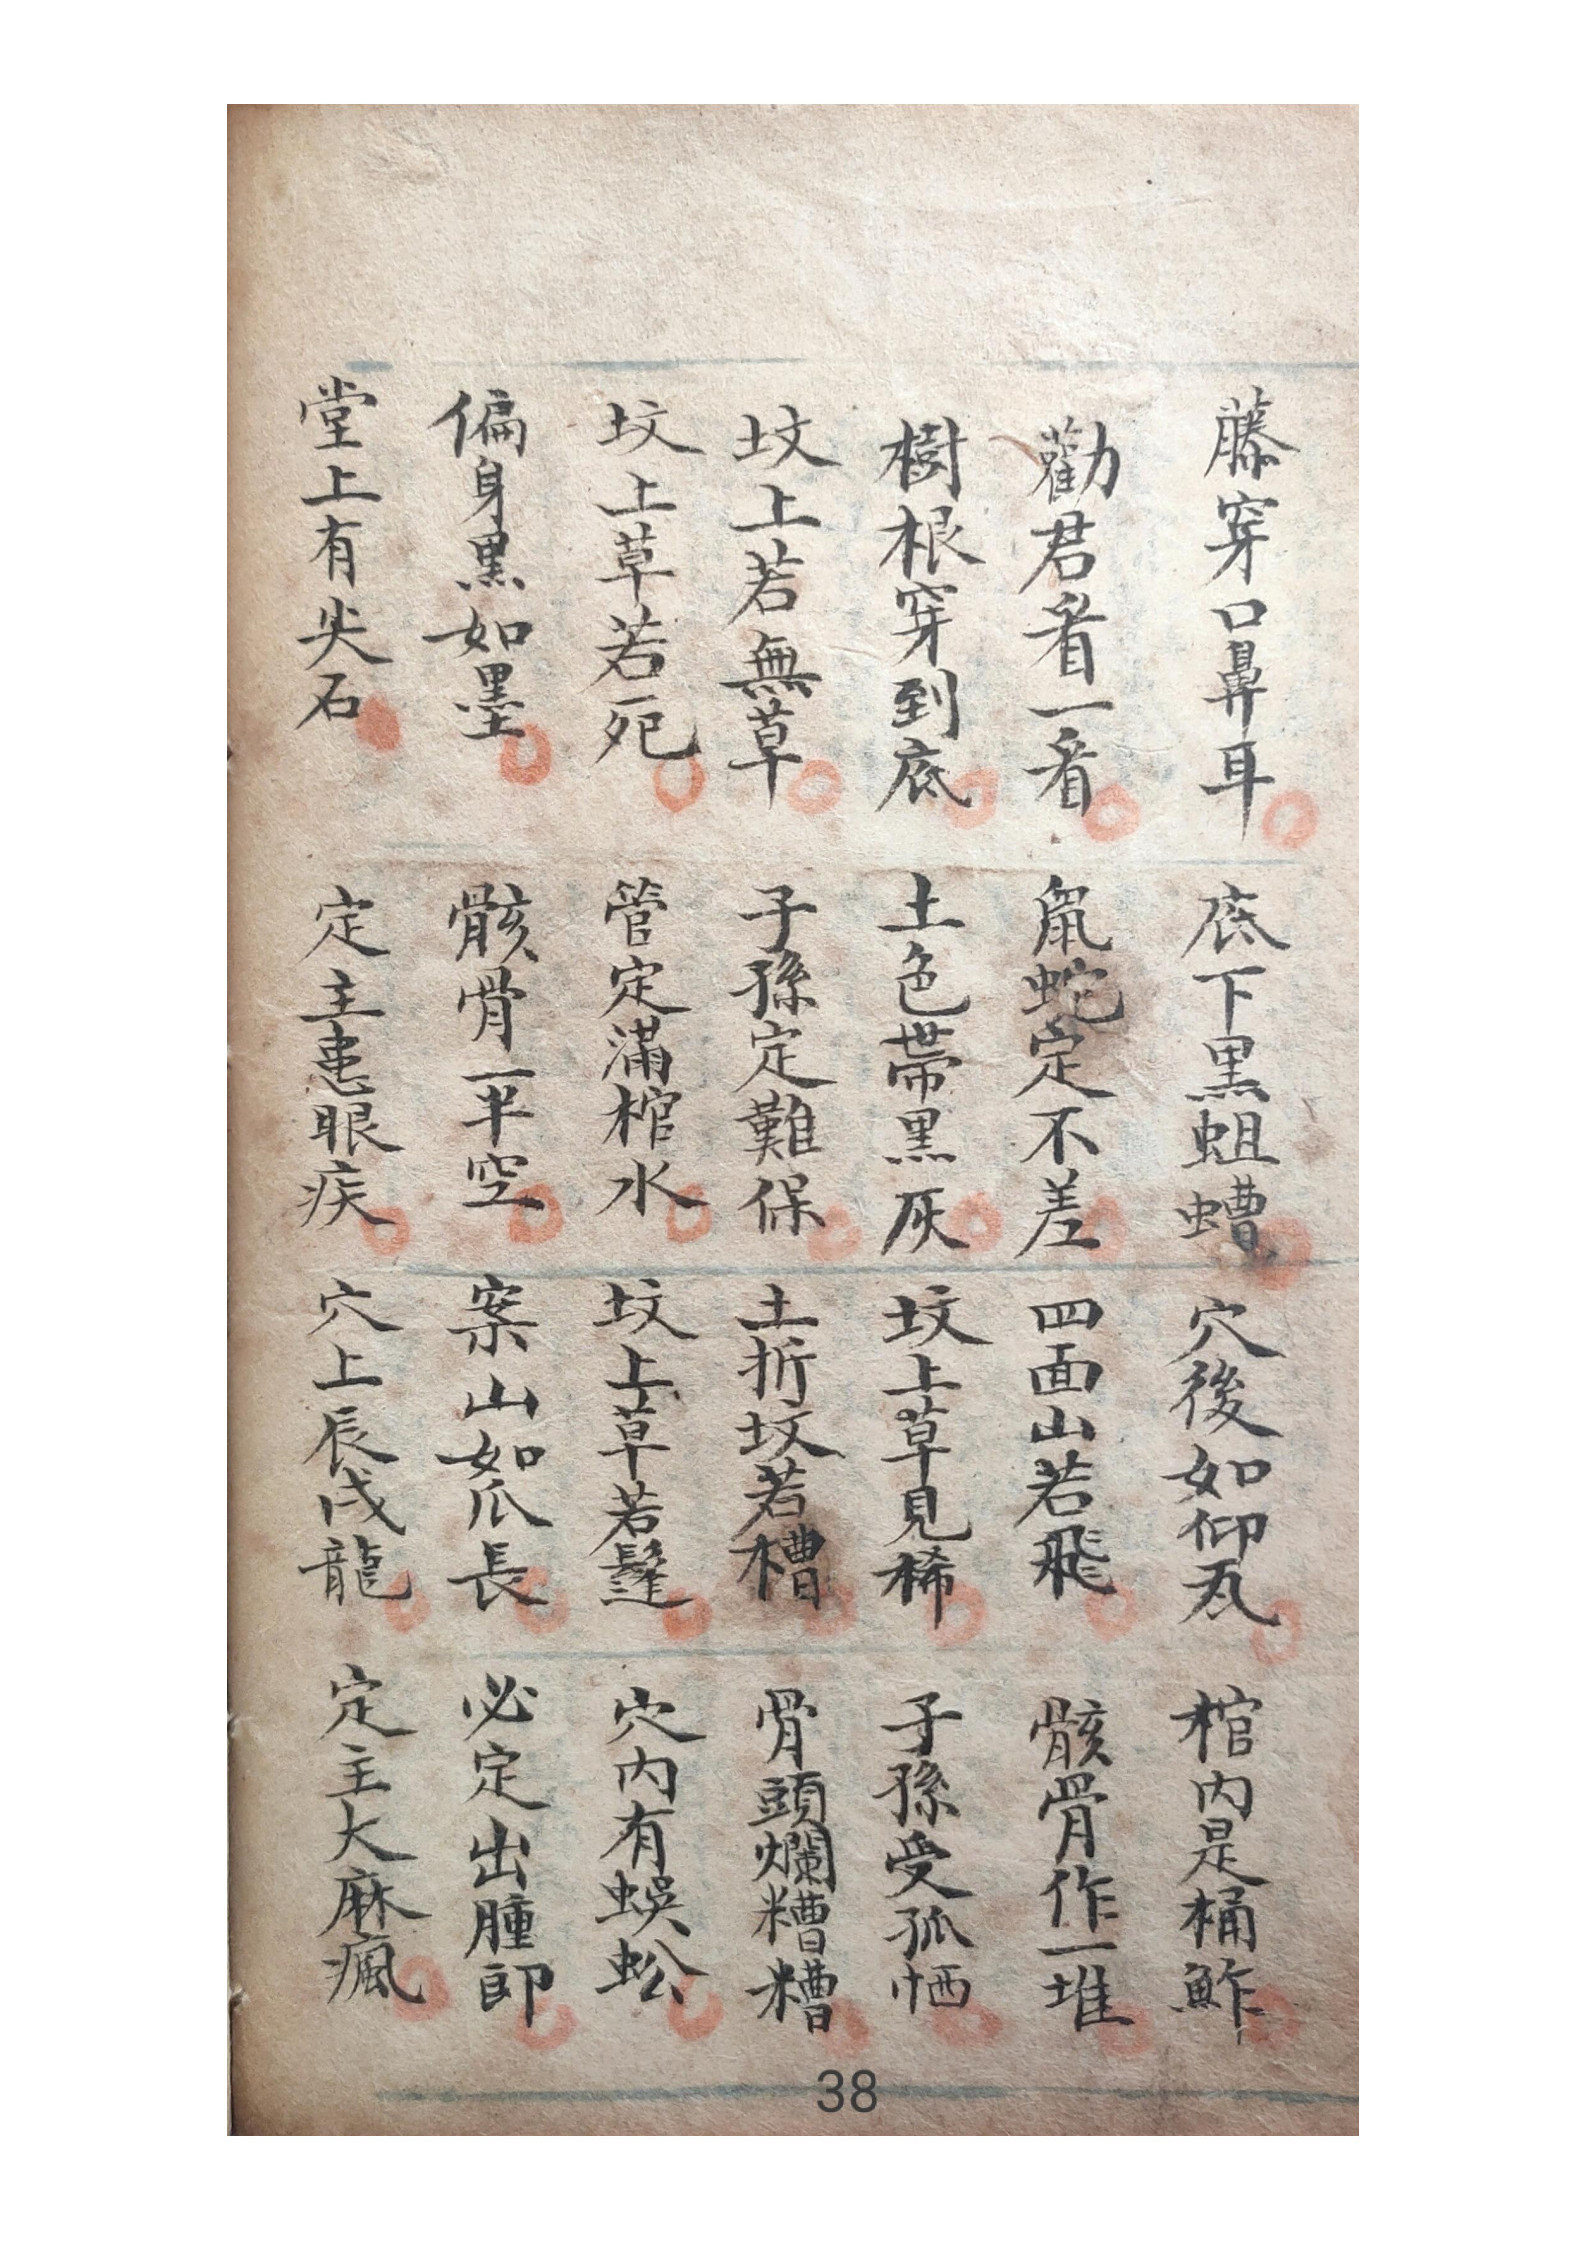 藤穿口鼻耳 底下黑蛆螬 穴後如仰瓦 棺内是桶鮓
勸君看一看 鼠蛇定不差 四面山若飛 骸骨作一堆
樹根穿到底 土色帶黑灰 坟上草見稀 子孫受孤恓
坟上若無草 子孫定難保 土折坟若槽 骨頭爛糟糟
坟上草若死 管定滿棺水 坟上草若鬔 穴内有蜈蚣
偏身黑如墨 骸骨一半空 案山如爪長 必定出腫
堂上有尖石 定主患眼疾 穴上辰戌龍 定主大麻瘋
38